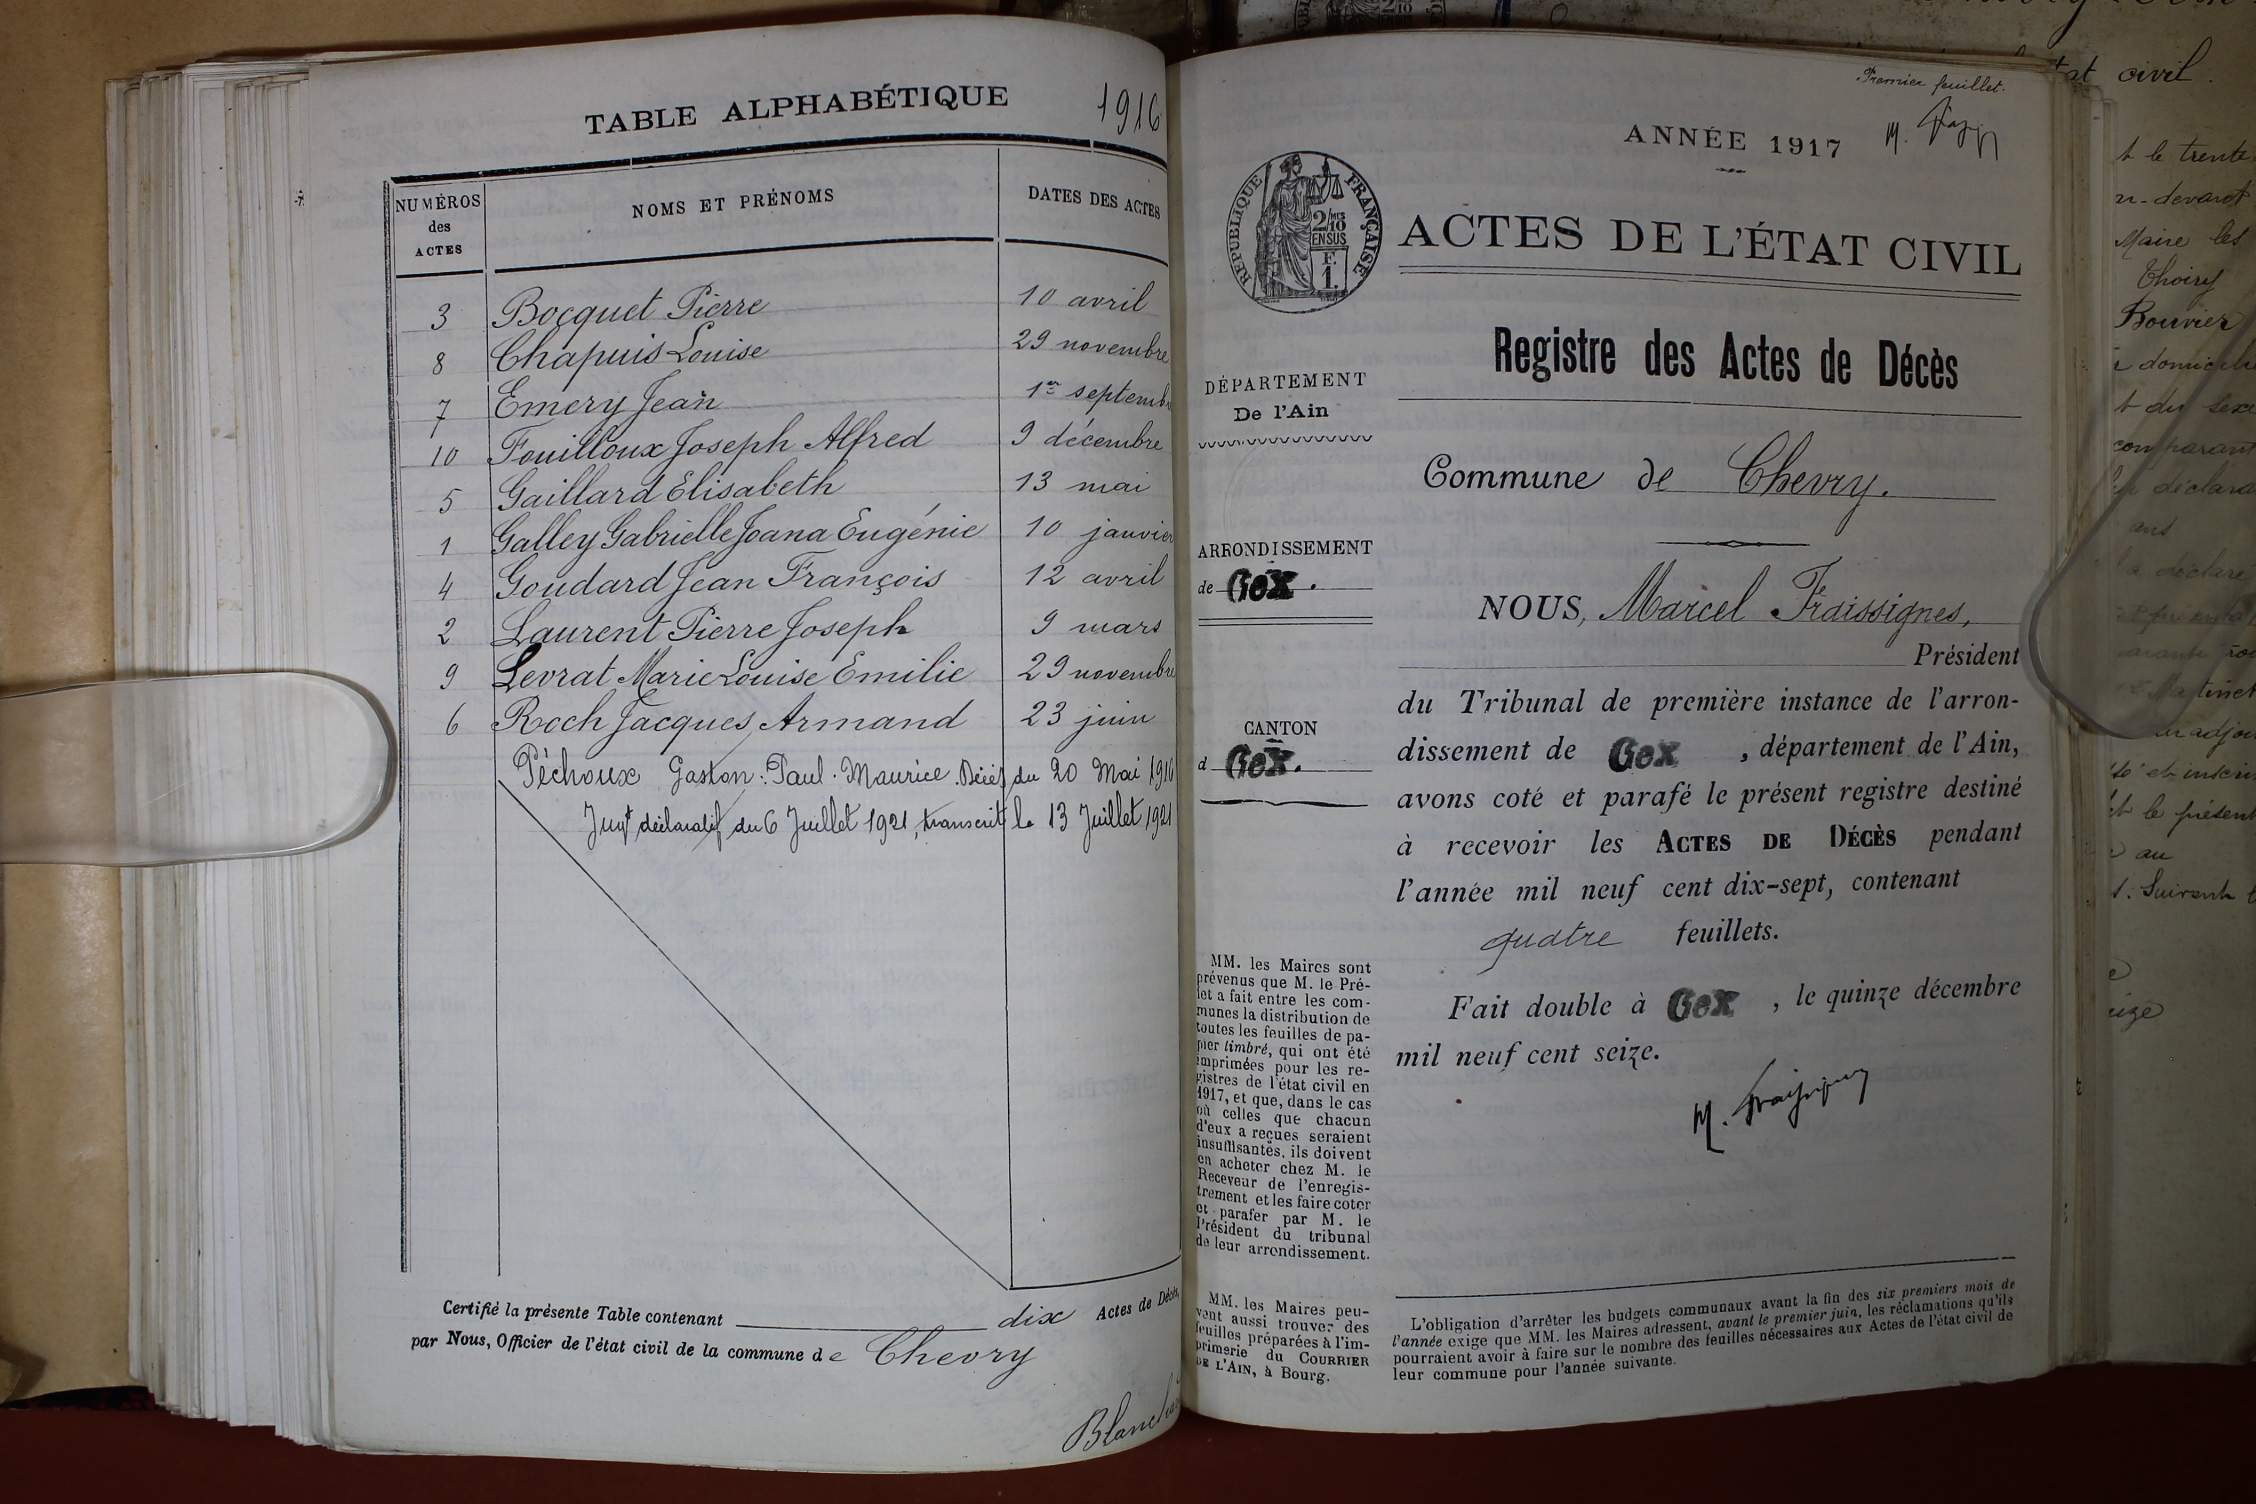 TABLE ALPHABÉTIQUE 1916
NUMÉROS des ACTES NOMS ET PRÉNOMS DATES DES ACTES
3 Bocquet Pierre 10 avril
8 Chapuis Louise 29 novembre
7 Emery Jean 1er septemb
10 Fouilloux Joseph Alfred 9 décembre
5 Gaillard Elisabeth 13 mai
1 Galley Gabrielle Joana Eugénie 10 janvier
4 Goudard Jean François 12 avril
2 Laurent Pierre Joseph 9 mars
9 Levrat Marie Louise Emilie 29 novembre
6 Roch Jacques Armand 23 juin
Péchoux Gaston. Paul. Maurice. Décès du 20 Mai 1916
Jugt déclaratif du 6 Juillet 1921, transcrit le 13 Juillet 1921
Certifié la présente Table contenant dix Actes de Décès,
par Nous, Officier de l'état civil de la commune de Chevry
Premier feuillet.
ANNÉE 1917
RÉPUBLIQUE FRANÇAISE
2/10 MES
EN SUS
F.
1.
ACTES DE L'ÉTAT CIVIL
Registre des Actes de Décès
DÉPARTEMENT
De l'Ain
Commune de Chevry.
ARRONDISSEMENT
de Gex.
CANTON
d Gex.
NOUS, Marcel Fraissignes,
Président
du Tribunal de première instance de l'arron-
dissement de Gex, département de l'Ain,
avons coté et parafé le présent registre destiné
à recevoir les ACTES DE DÉCÈS pendant
l'année mil neuf cent dix-sept, contenant
quatre feuillets.
Fait double à Gex, le quinze décembre
mil neuf cent seize.
M. Fraissignes
MM. les Maires sont
prévenus que M. le Pré-
fet a fait entre les com-
munes la distribution de
toutes les feuilles de pa-
pier timbré, qui ont été
imprimées pour les re-
gistres de l'état civil en
1917, et que, dans le cas
où celles que chacun
d'eux a reçues seraient
insuffisantes, ils doivent
en acheter chez M. le
Receveur de l'enregis-
trement et les faire coter
et parafer par M. le
Président du tribunal
de leur arrondissement.
MM. les Maires peu-
vent aussi trouver des
feuilles préparées à l'im-
primerie du COURRIER
DE L'AIN, à Bourg.
L'obligation d'arrêter les budgets communaux avant la fin des six premiers mois de
l'année exige que MM. les Maires adressent, avant le premier juin, les réclamations qu'ils
pourraient avoir à faire sur le nombre des feuilles nécessaires aux Actes de l'état civil de
leur commune pour l'année suivante.
civil.
le trente
Maire les
Thoiry
Bouvier
du sexe
comparant
ans
déclaré
et inscri
le présent
au
Suivent